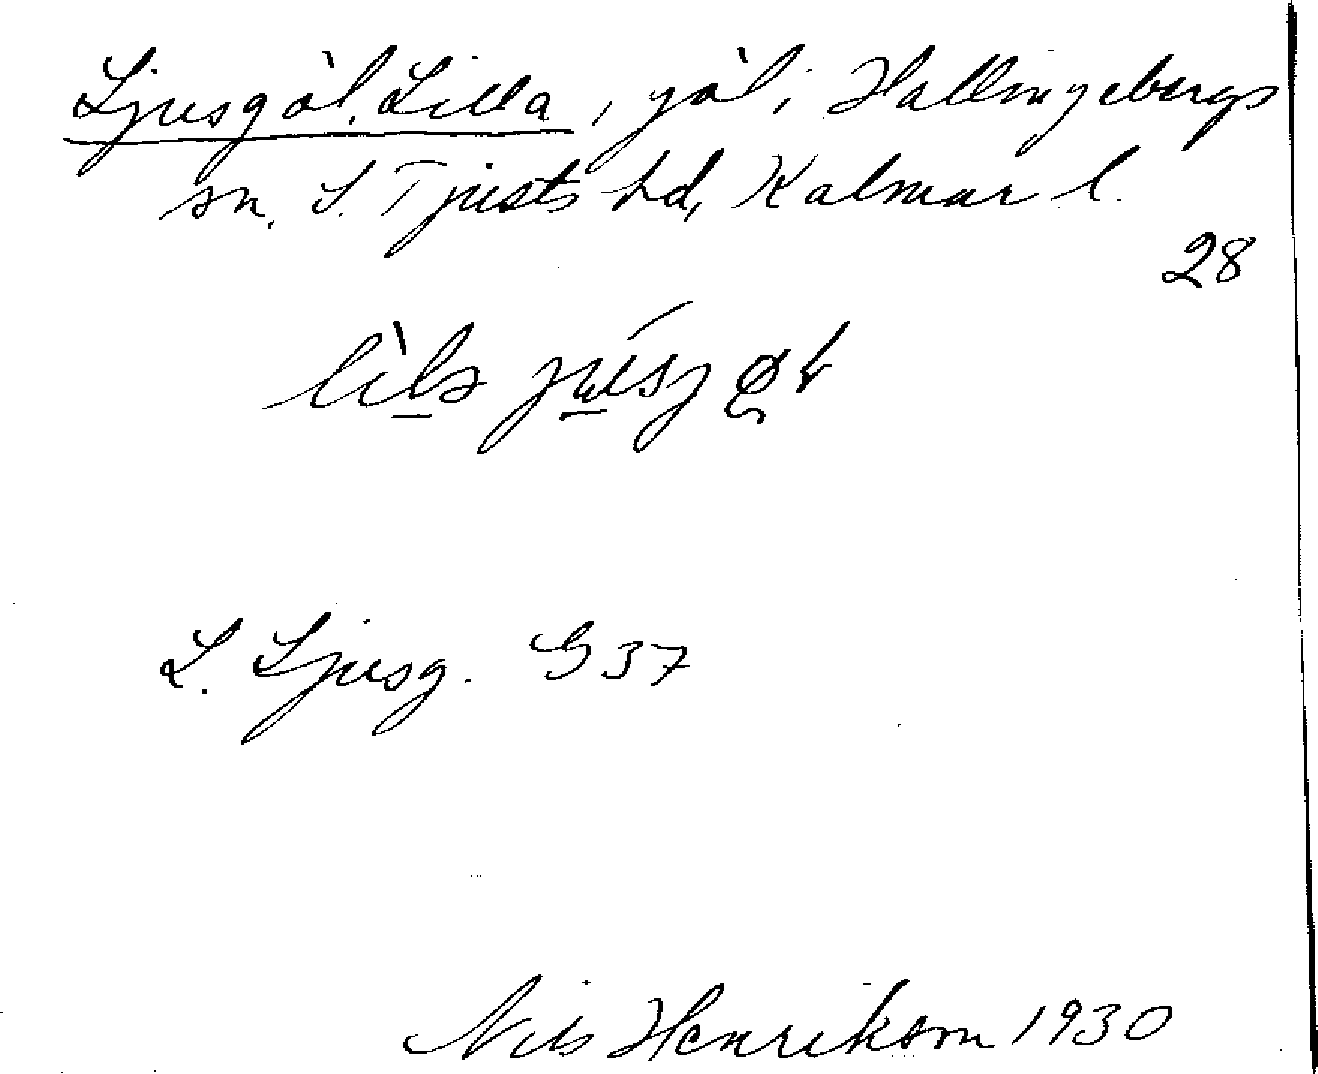 Ljusgöl, Lilla, göl i Hallingebergs
sn. S. Tjusts hd, Kalmar l.
28
L. Ljusg. G 37
Nils Henrikson 1930